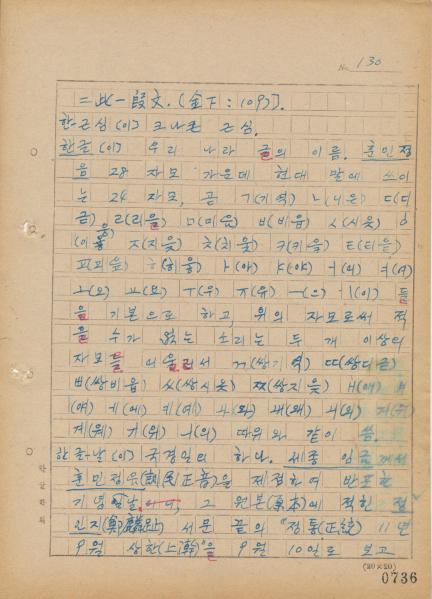 No. 130
=此一段文.(金下:109ㄱ).
한근심(이) 크나큰 근심.
한글(이) 우리 나라 글의 이름. 훈민정
음 28 자모 가운데 현대 말에 쓰이
는 24 자모, 곧 ㄱ(기역) ㄴ(니은) ㄷ(디
귿) ㄹ(리을) ㅁ(미음) ㅂ(비읍) ㅅ(시옷) ㅇ
(이응) ㅈ(지읒) ㅊ(치읓) ㅋ(키읔) ㅌ(티읕)
ㅍ(피읖) ㅎ(히읗) ㅏ(아) ㅑ(야) ㅓ(어) ㅕ(여)
ㅗ(오) ㅛ(요) ㅜ(우) ㅠ(유) ㅡ(으) ㅣ(이) 들
을 기본으로 하고, 위의 자모로써 적
을 수가 없는 소리는 두 개 이상의
자모를 어울러서 ㄲ(쌍기역) ㄸ(쌍디귿)
ㅃ(쌍비읍) ㅆ(쌍시옷) ㅉ(쌍지읒) ㅐ(애) ㅒ
(얘) ㅔ(에) ㅖ(예) ㅘ(와) ㅙ(왜) ㅚ(외) ㅝ(워)
ㅞ(웨) ㅟ(위) ㅢ(의) 따위와 같이 씀.
한글-날(이) 국경일의 하나. 세종 임금께서
훈민정음(訓民正音)을 제정하여 반포한
기념 날. 그 원본(原本)에 적힌 정
인지(鄭麟趾) 서문 끝의 "정통(正統) 11년
9월 상한(上澣)"을 9월 10일로 보고
한글학회
(20×20)
0736